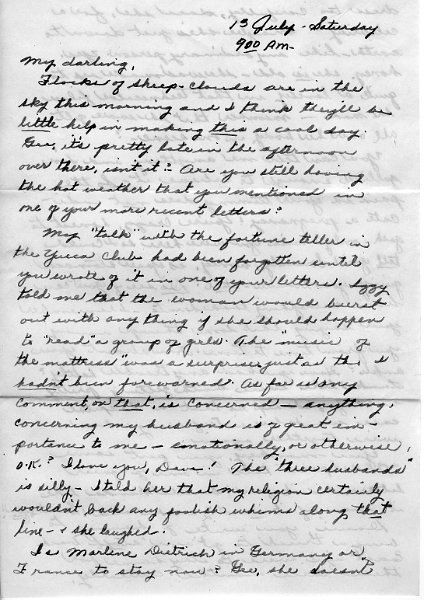 13 July - Saturday
9:00 AM-
My darling,
Flocks of sheep-clouds are in the
sky this morning and I think they'll be
little help in making this a cool day.
Gee, it's pretty hot in the afternoon
over there, isn't it? Are you still having
the hot weather that you mentioned in
one of your more recent letters?
My "talk" with the fortune teller in
the Yucca Club had been forgotten until
you wrote of it in one of your letters. Izzy
told me that the woman would burst
out with anything if she should happen
to "read" a group of girls. The "music of
the mattress" was a surprise just as tho I
hadn't been forewarned. As far as any
comment, on that, is concerned — anything,
concerning my husband is of great im-
portance to me — emotionally, or otherwise,
O.K.? I love you, Dave! The "three husbands"
is silly - I told her that my religion certainly
wouldn't back any foolish whims along that
line - & she laughed.
Is Marlene Dietrich in Germany or
France to stay now? Gee, she doesn't